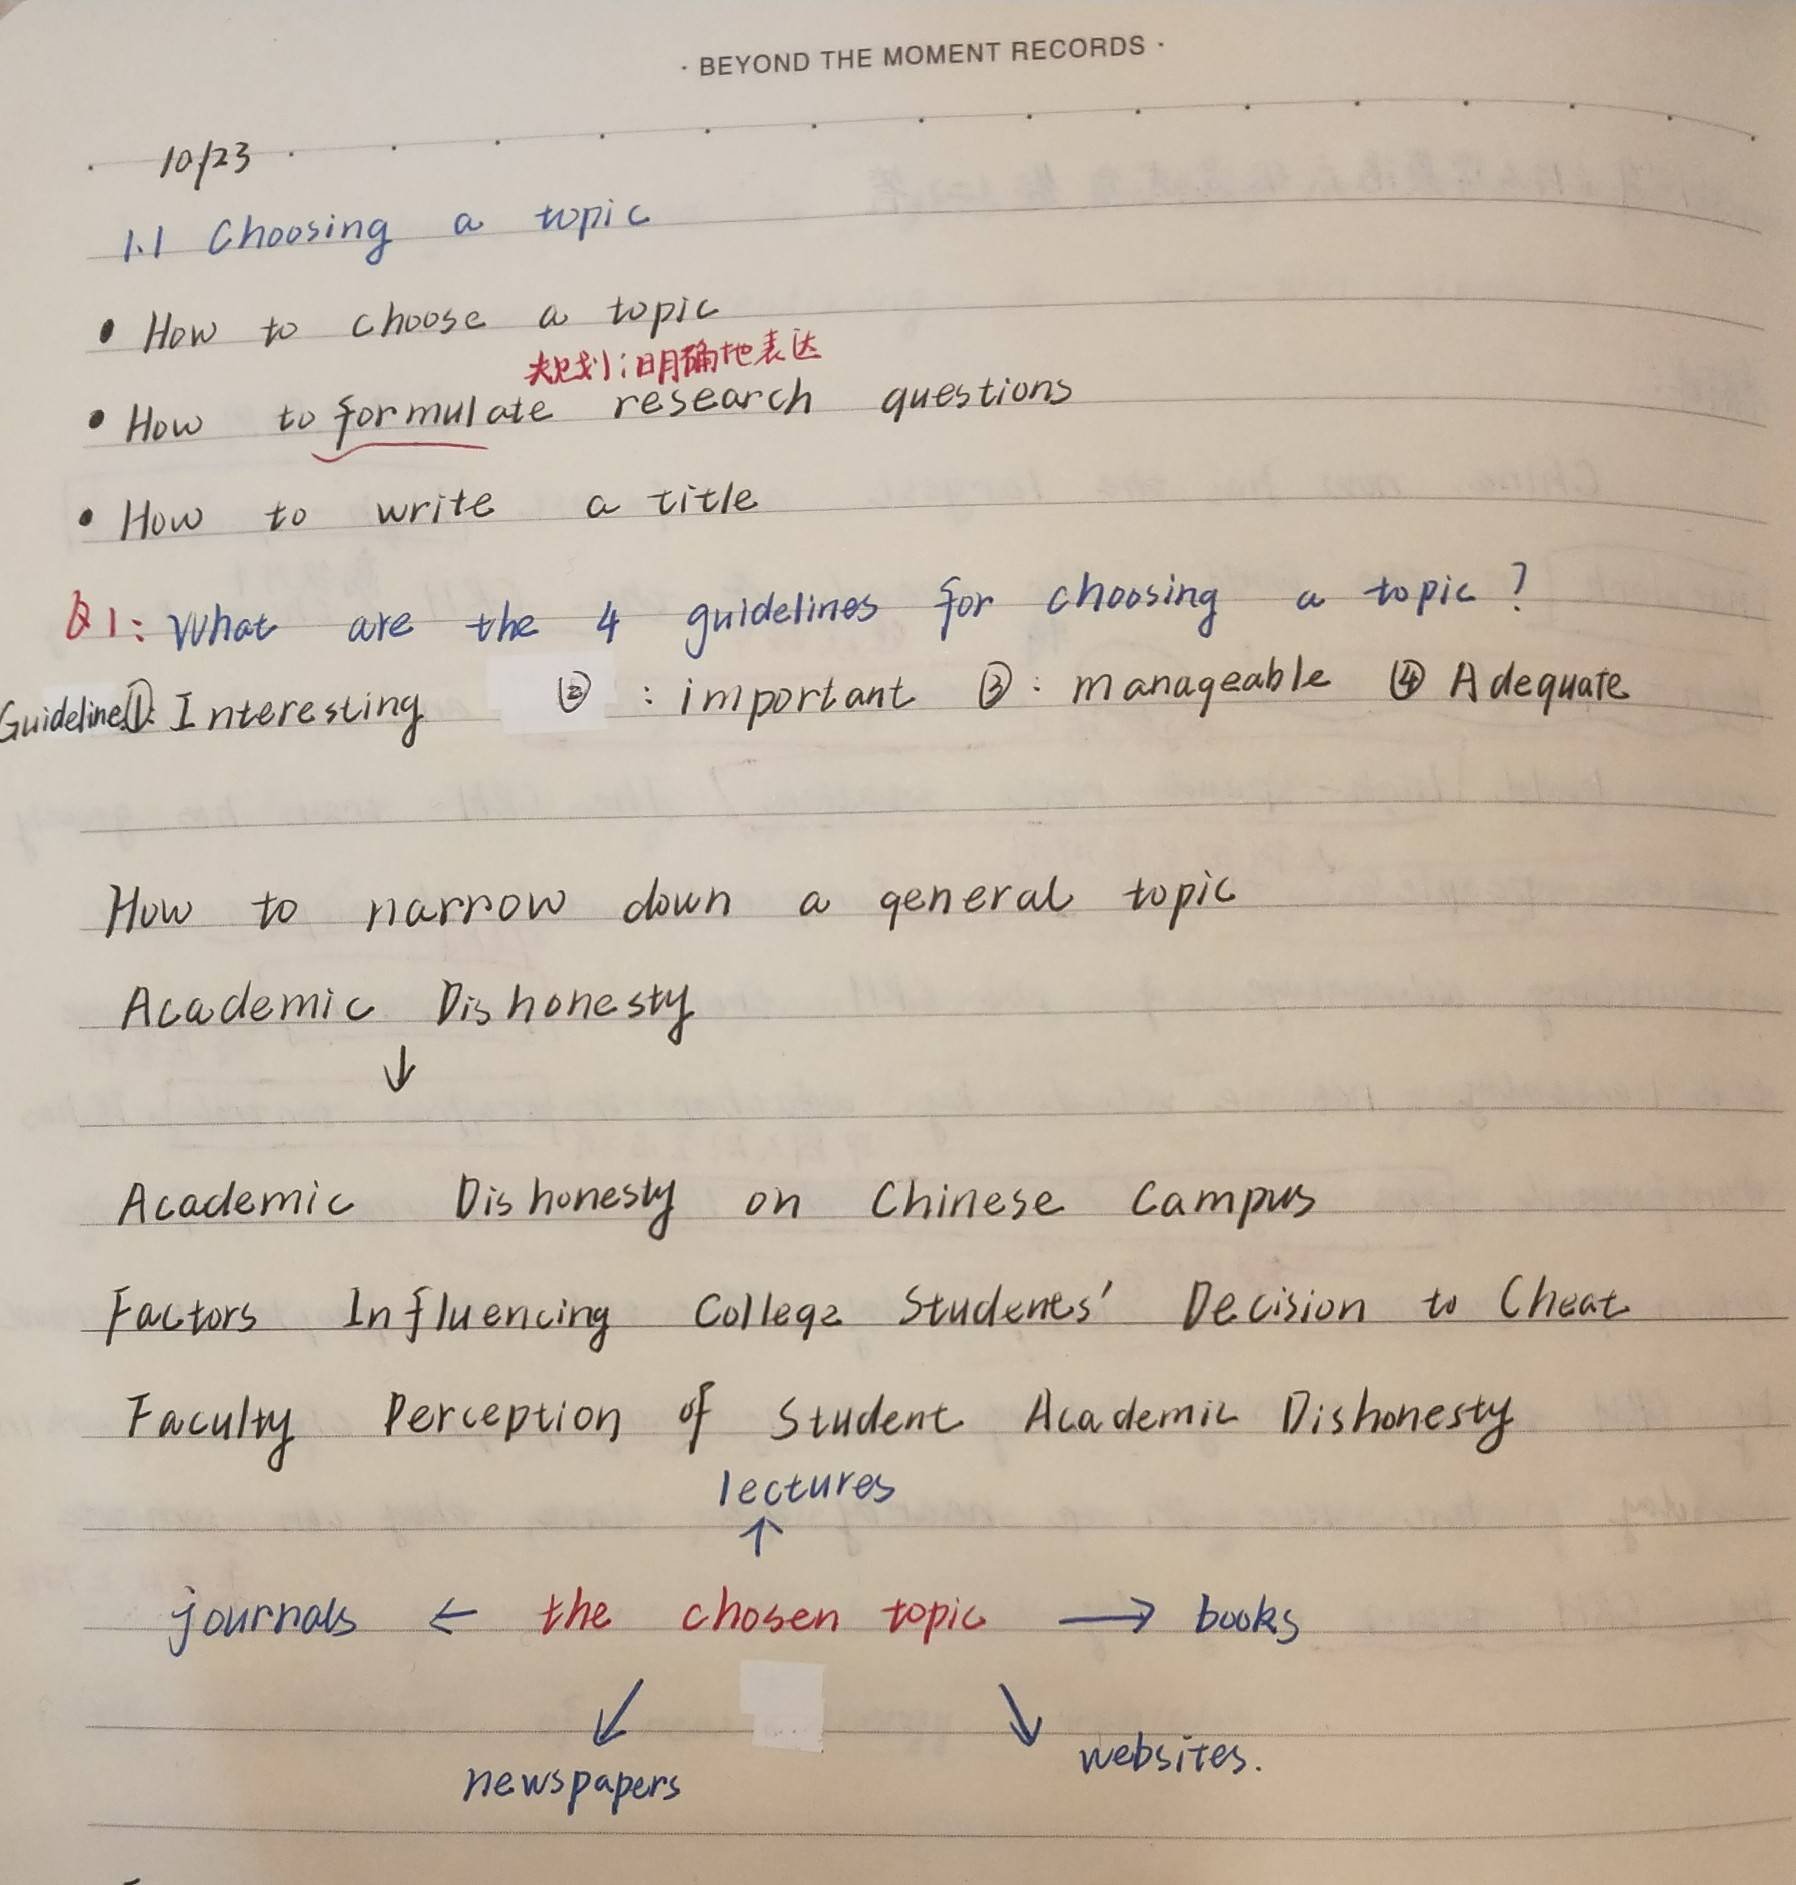 · BEYOND THE MOMENT RECORDS ·
10/23
1.1 Choosing a topic
• How to choose a topic
规划；明确地表达
• How to formulate research questions
• How to write a title
Q1: What are the 4 guidelines for choosing a topic?
Guideline①: Interesting ② : important ③ : manageable ④ Adequate
How to narrow down a general topic
Academic Dishonesty
↓
Academic Dishonesty on Chinese Campus
Factors Influencing College Students' Decision to Cheat
Faculty Perception of Student Academic Dishonesty
lectures
↑
journals ← the chosen topic → books
↙ ↘
newspapers websites.